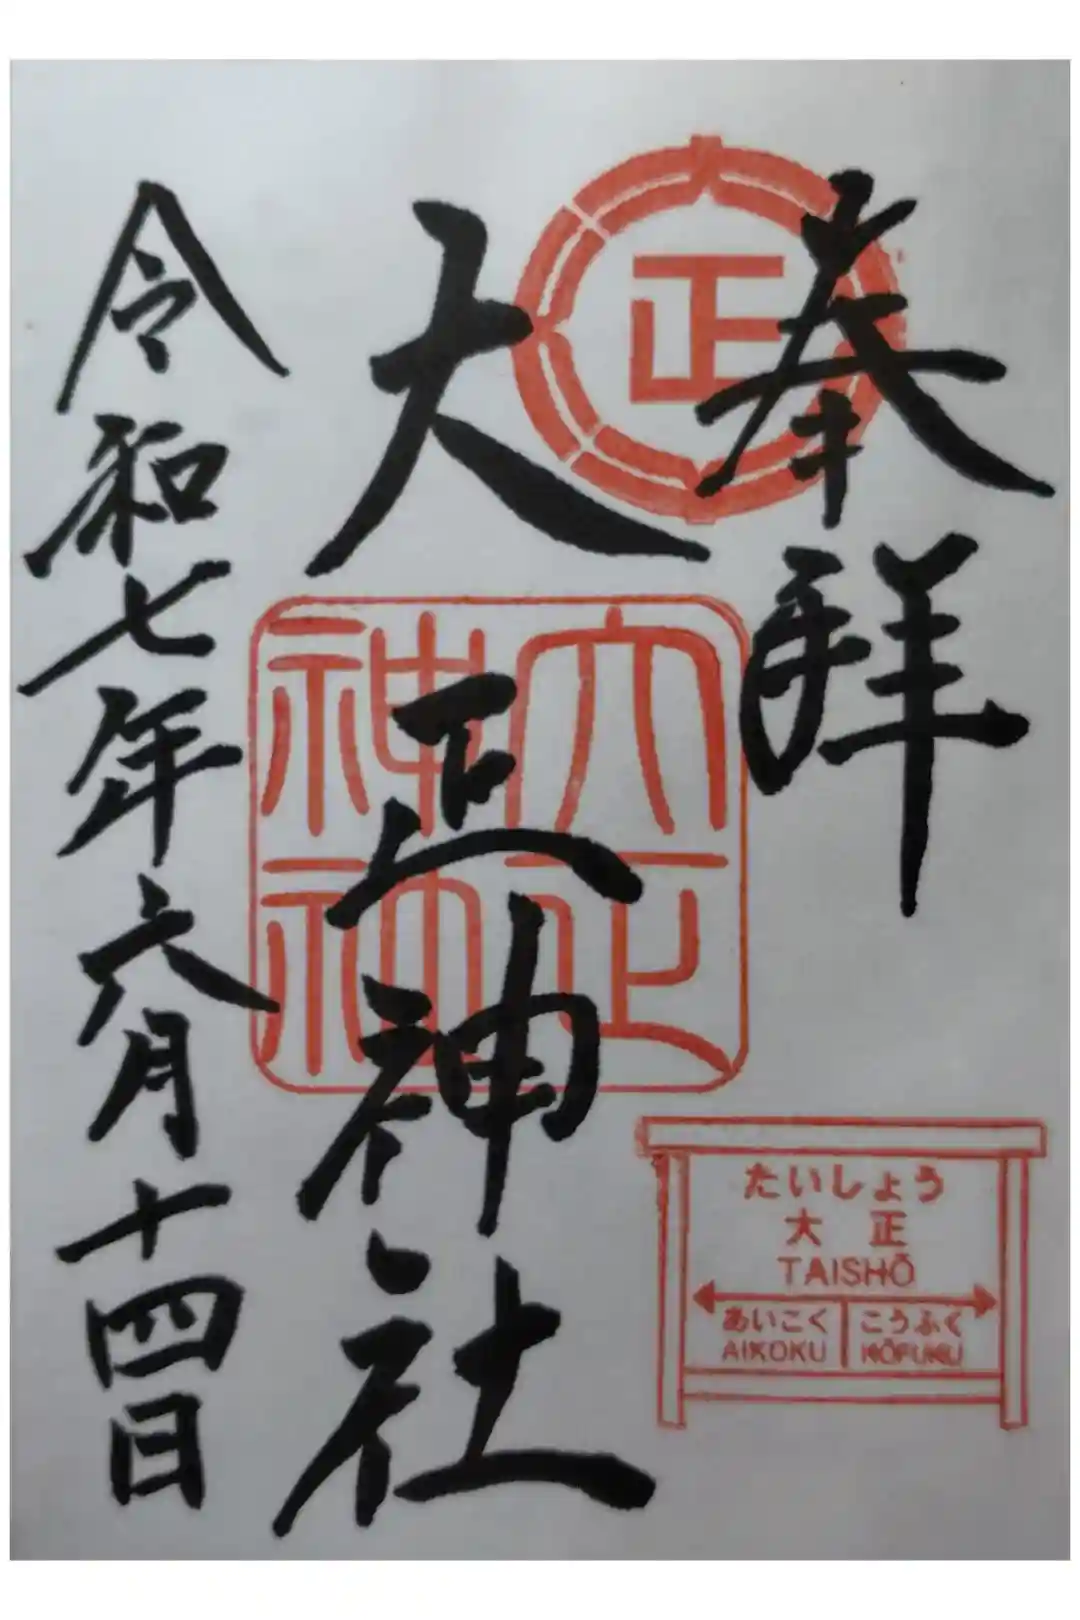 奉拝
正
大正神社
大正神社
令和七年六月十四日
たいしょう
大正
TAISHŌ
あいこく こうふく
AIKOKU KŌFUKU